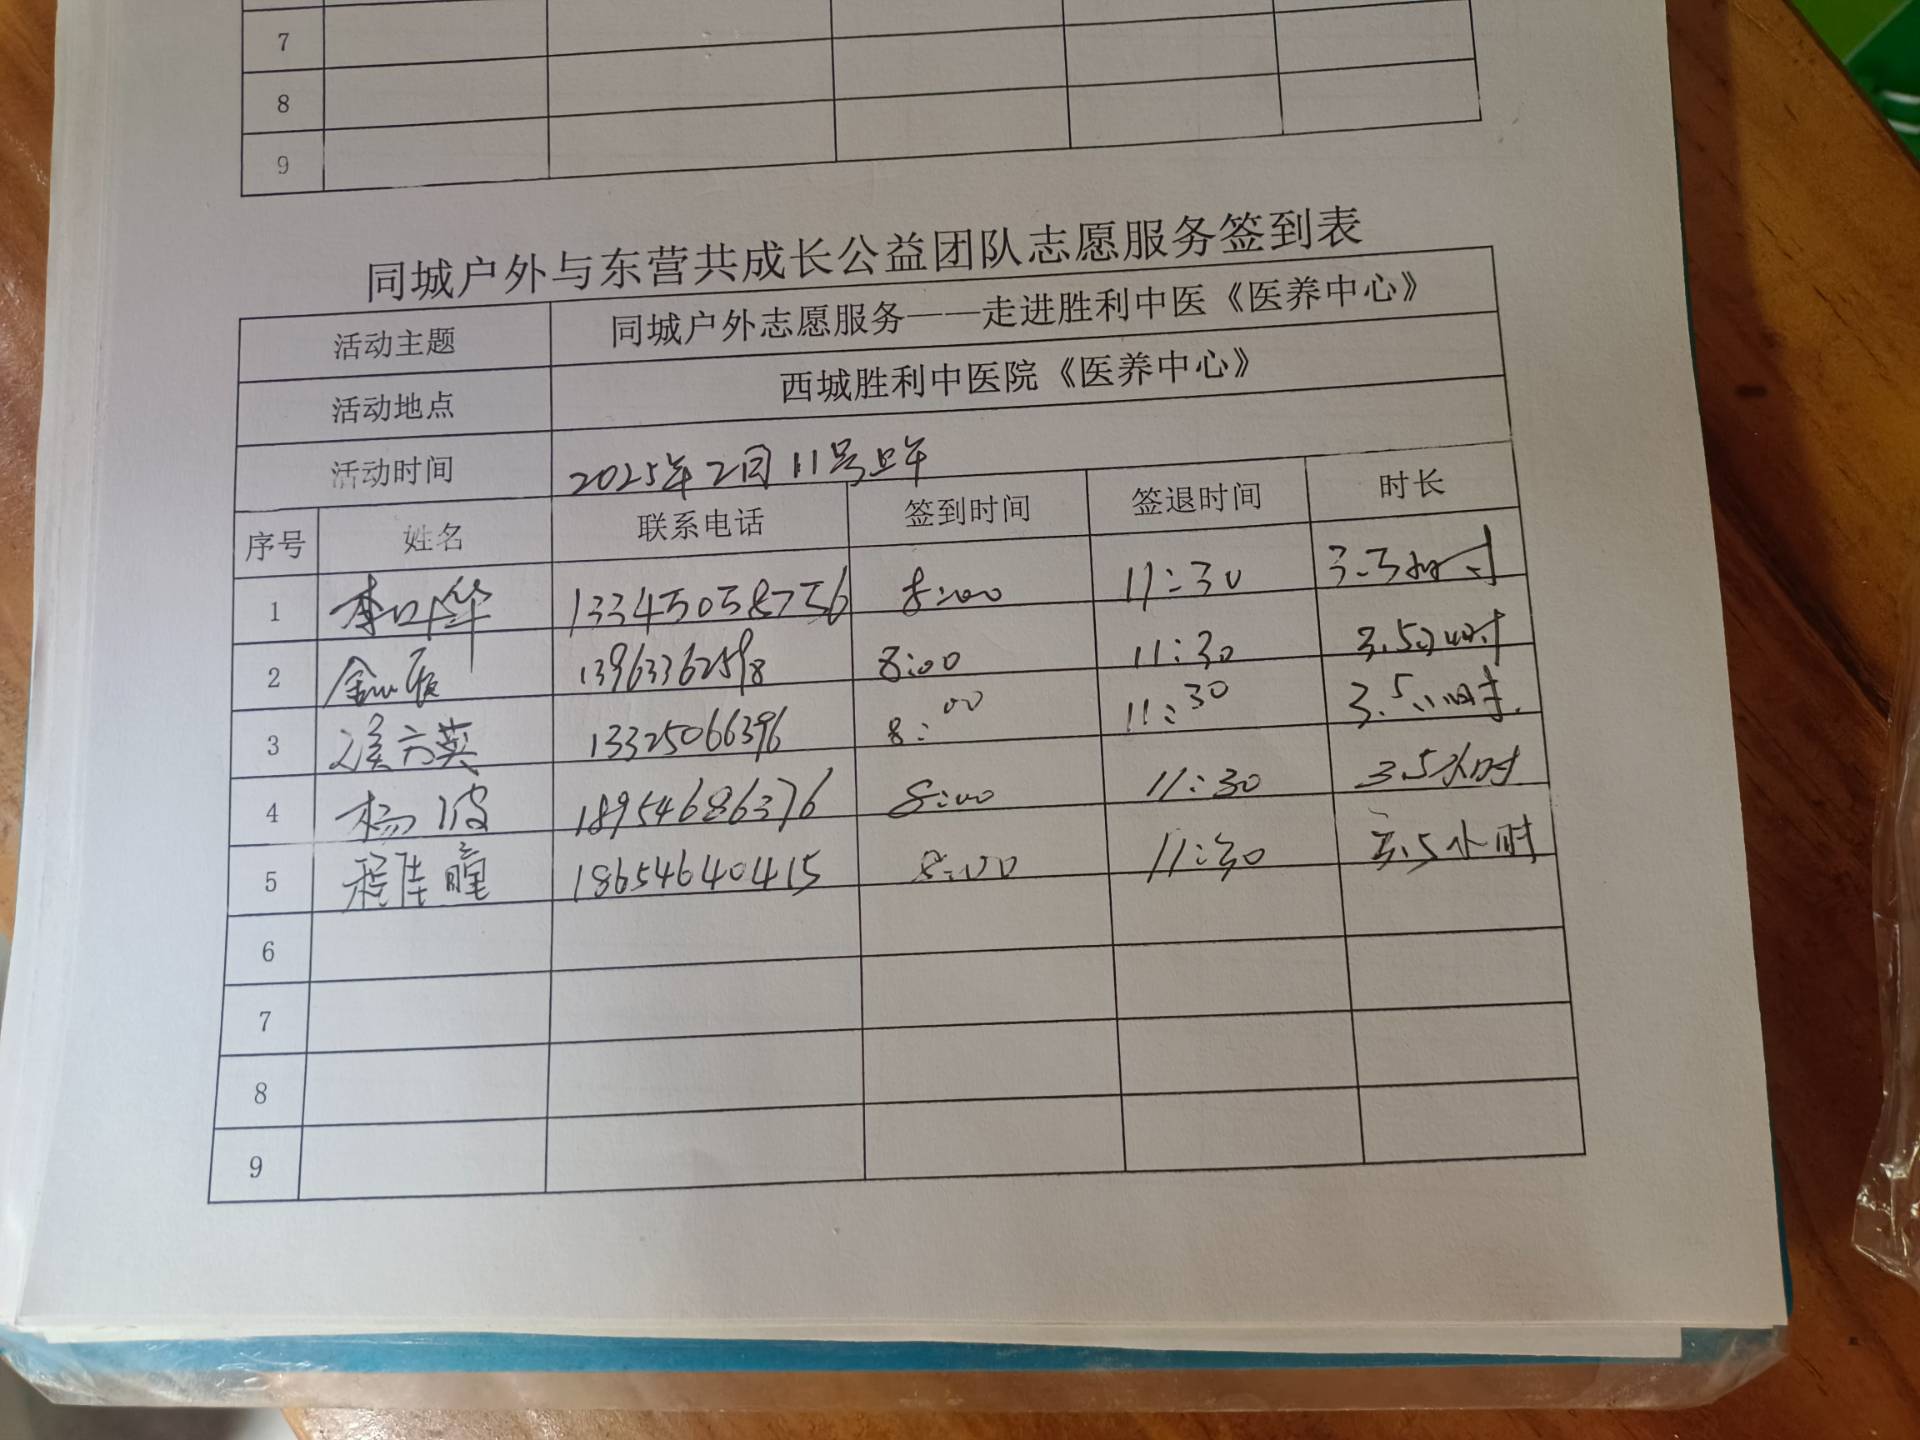 7
8
9
同城户外与东营共成长公益团队志愿服务签到表
活动主题 同城户外志愿服务——走进胜利中医《医养中心》
活动地点 西城胜利中医院《医养中心》
活动时间 2025年2月11号上午
序号 姓名 联系电话 签到时间 签退时间 时长
1 李叶华 13345058756 8:00 11:30 3.5小时
2 13963362598 8:00 11:30 3.5小时
3 方英 13325066396 8:00 11:30 3.5小时
4 杨波 18954686376 8:00 11:30 3.5小时
5 程佳瞳 18654640415 8:00 11:30 3.5小时
6
7
8
9